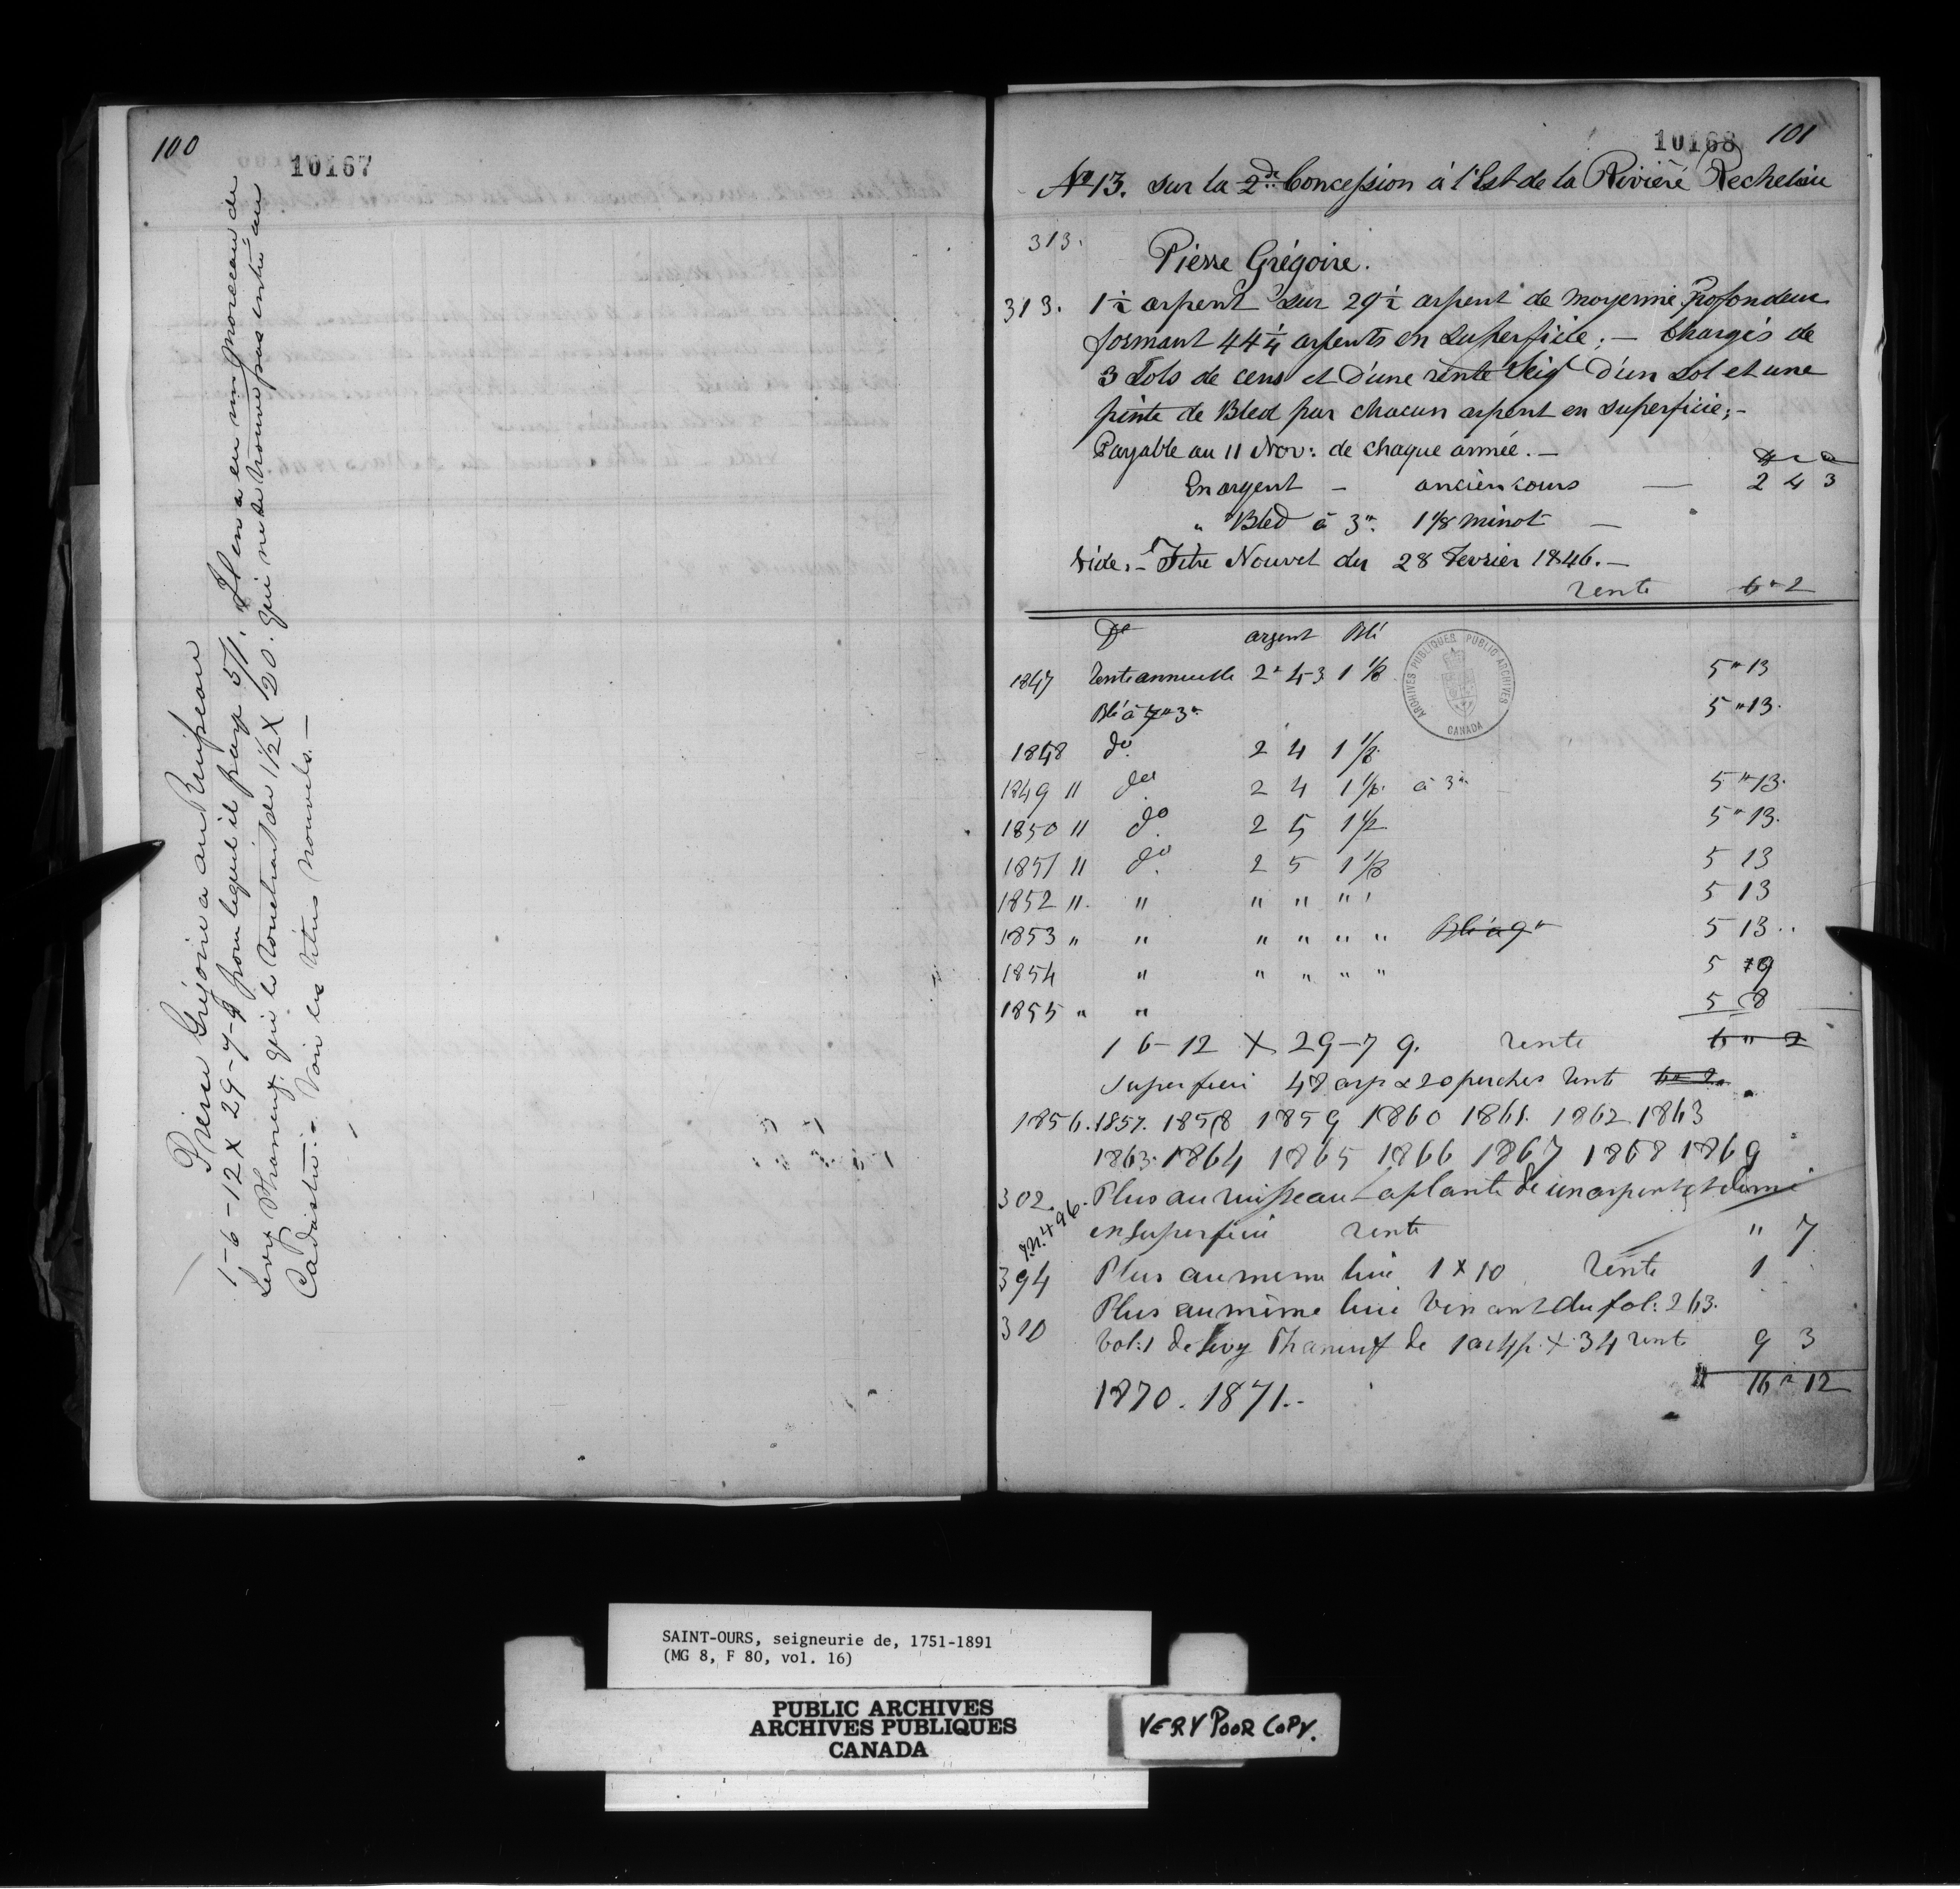 100
10167
Pierre Grégoire a au Ruisseau
1-6-12 X 29-7-9 pour lequel il paye 5/. Il en a eu un morceau de
Levy Phaneuf qui le construit de 1½ X 20. qui ne se trouve pas entré au
Cadastre:- Voir les titres nouvels.—
10168
101
No 13. sur la 2de Concession à l'Est de la Rivière Rechelieu
313.
Pierre Grégoire.
313. 1½ arpent sur 29½ arpent de moyenne Profondeur
formant 44¼ arpents en superficie; — Chargés de
3 Sols de cens et d'une rente Seig d'un sol et une
pinte de Bled par chacun arpent en superficie;-
Payable au 11 Nov: de chaque année.—
En argent — ancien cours — 2 4 3
" Bled à 3" 1 1/8 minot —
Vide:- Titre Nouvel du 28 Fevrier 1846.—
rente 6 " 2
Do argent Blé
1847 Rente annuelle 2 " 4-3 1 1/8 5 " 13
Blé à 3" 5 " 13.
1848 do 2 4 1 1/8
1849 " do 2 4 1 1/8 à 3" 5 " 13.
1850 " do 2 5 1 1/2 5 " 13.
1851 " do 2 5 1 1/8 5 13
1852 " " " " " " 5 13
1853 " " " " " " Blé à 9" 5 13
1854 " " " " " 5 19
1855 " " 5 8
1 6-12 X 29-7 9. rente 6 " 2
Superficie 48 arp & 20 perches rente 6 " 2
1856. 1857. 1858 1859 1860 1861. 1862 1863
1863. 1864 1865 1866 1867 1868 1869
302. Plus au ruisseau laplante de un arpent et demi
496. en superficie rente " 7
394 Plus au meme lieu 1 X 10 rente 1
Plus au même lieu venant du fol: 263.
310 Vol: 1 de Levy Phaneuf de 1 arp X 34 rente 9 3
16 " 12
1870. 1871.-
ARCHIVES PUBLIQUES PUBLIC ARCHIVES
CANADA
SAINT-OURS, seigneurie de, 1751-1891
(MG 8, F 80, vol. 16)
PUBLIC ARCHIVES
ARCHIVES PUBLIQUES
CANADA
VERY POOR COPY.